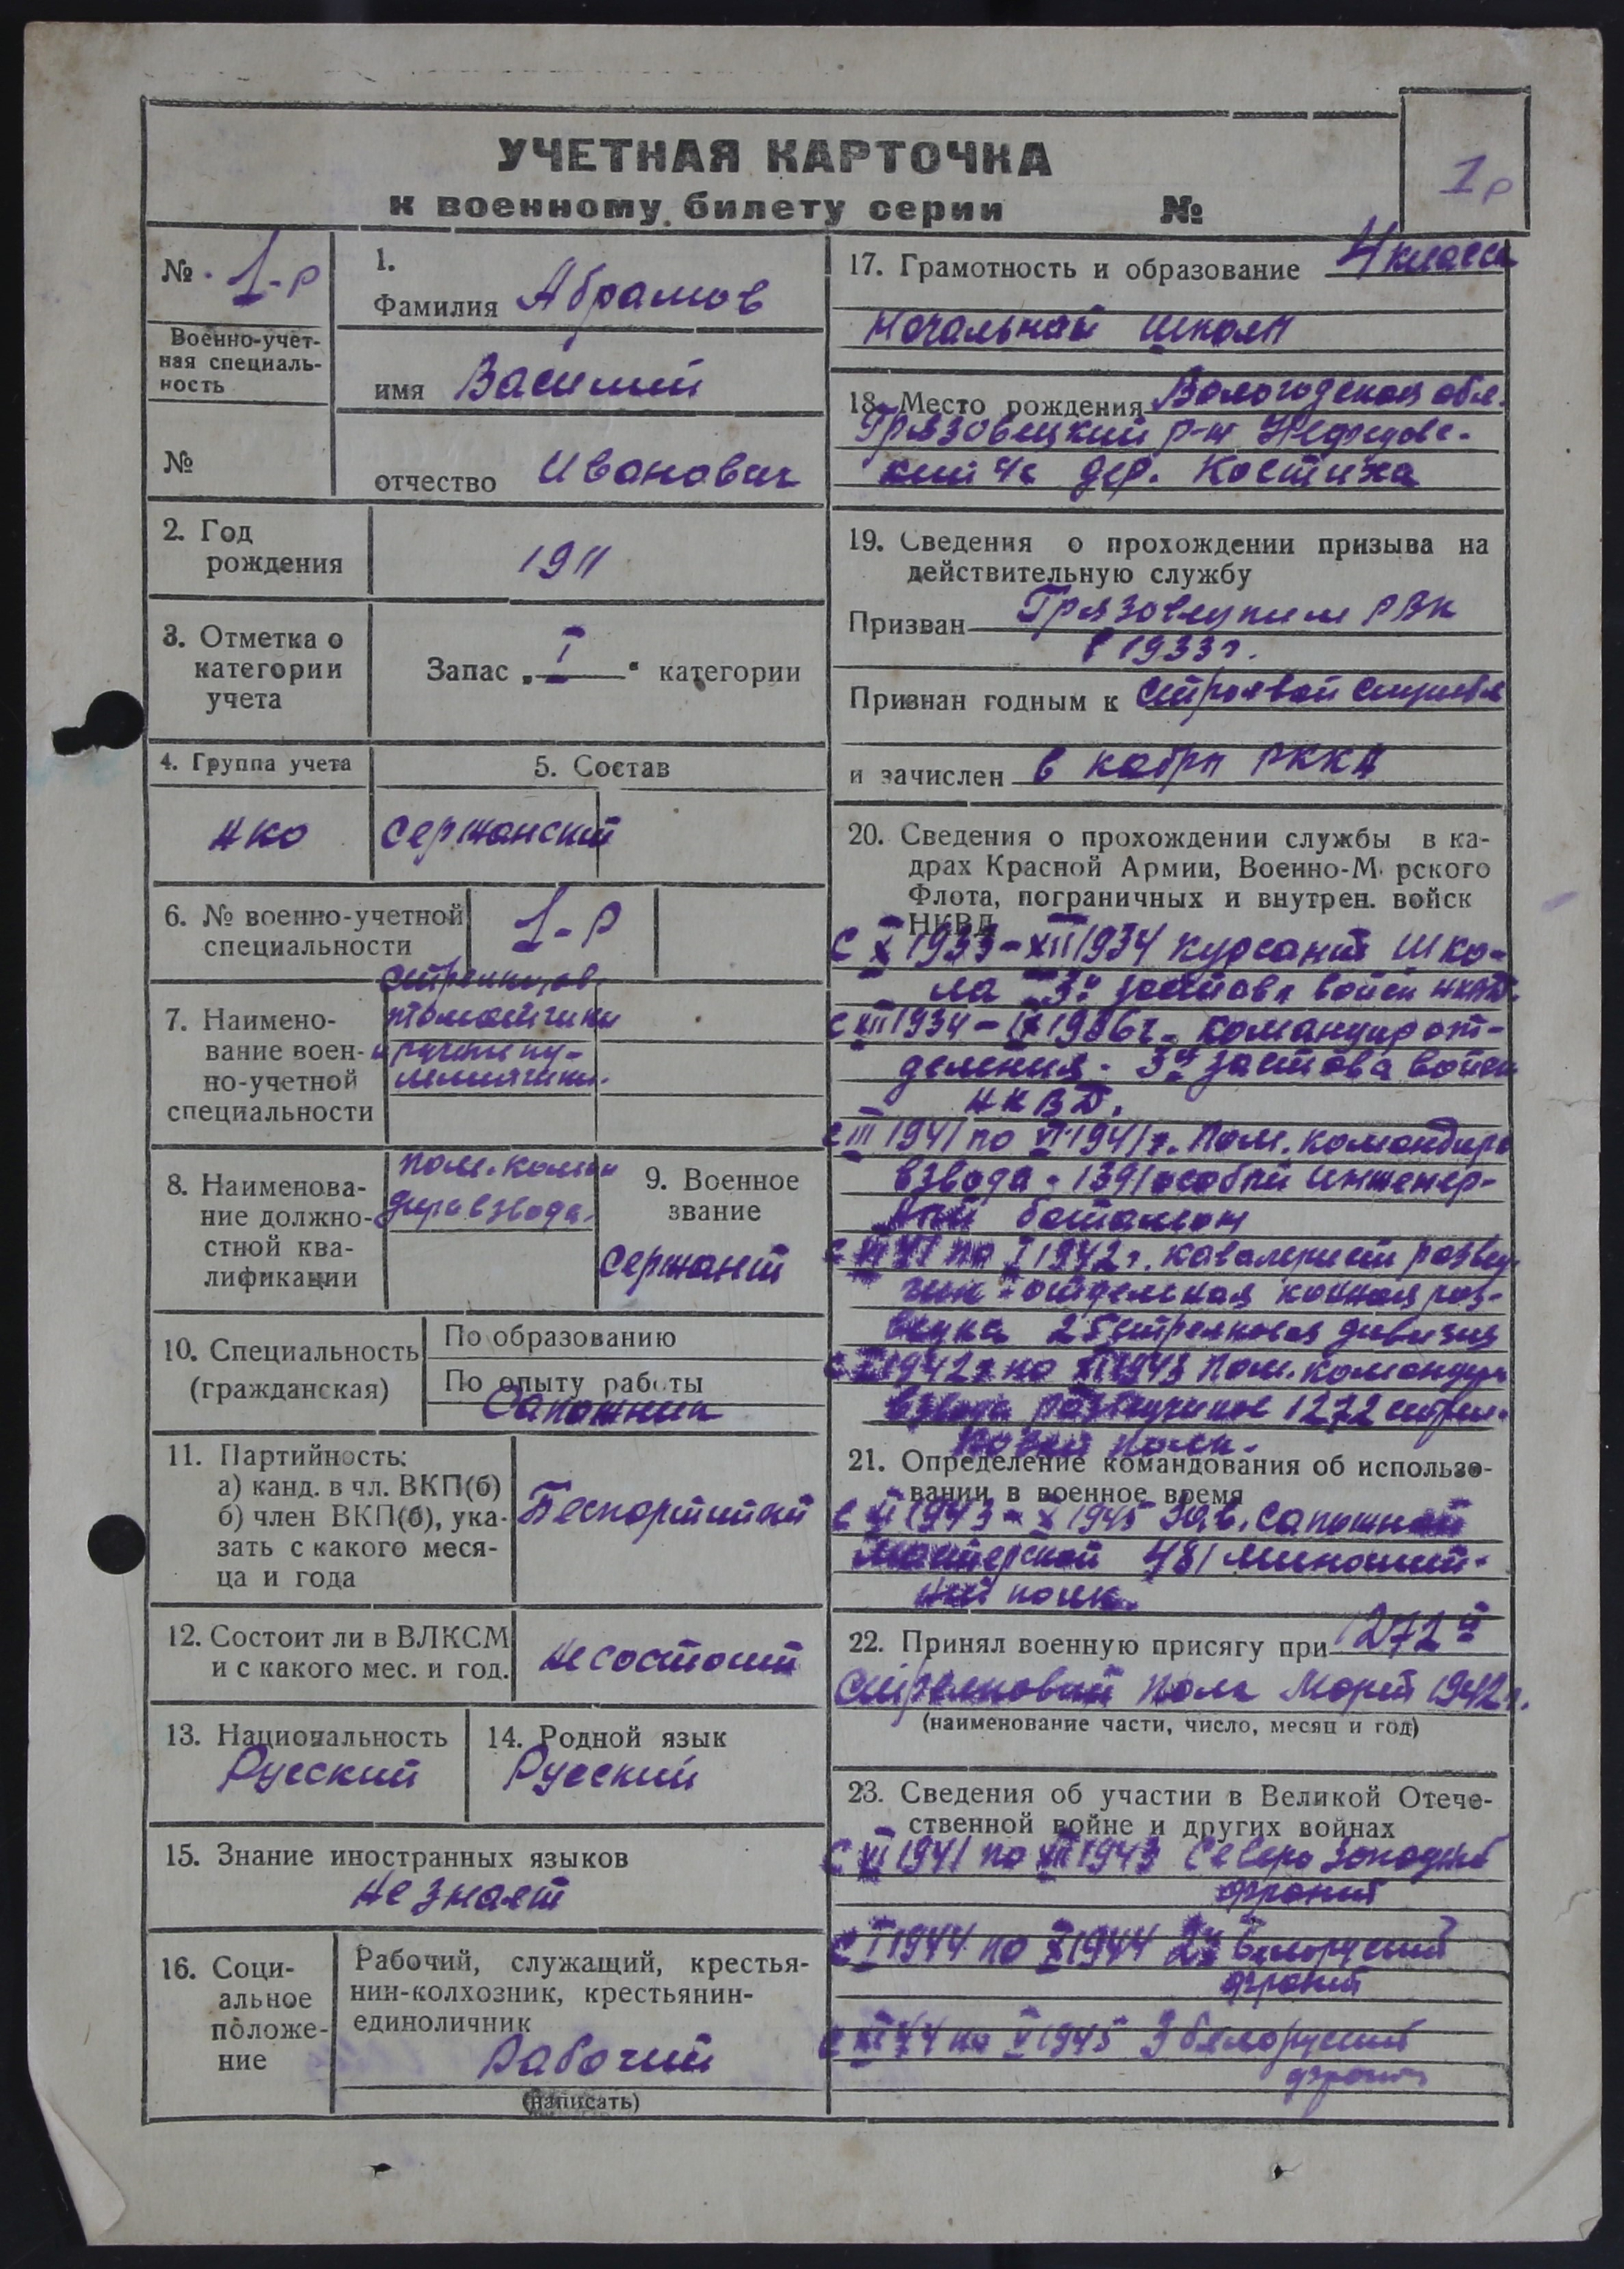 1р
УЧЕТНАЯ КАРТОЧКА
к военному билету серии №
№ 1-р
Военно-учет-
ная специаль-
ность
№
1.
Фамилия Абрамов
имя Василий
отчество Иванович
2. Год
рождения
1911
3. Отметка о
категории
учета
Запас „ I “ категории
4. Группа учета
5. Состав
НКО
Сержанский
6. № военно-учетной
специальности
1-р
7. Наимено-
вание воен-
но-учетной
специальности
8. Наименова-
ние должно-
стной ква-
лификации
пом. коман
дира взвода.
9. Военное
звание
Сержант
10. Специальность
(гражданская)
По образованию
По опыту работы
Сапожник
11. Партийность:
а) канд. в чл. ВКП(б)
б) член ВКП(б), ука-
зать с какого меся-
ца и года
Беспартийный
12. Состоит ли в ВЛКСМ
и с какого мес. и год.
не состоит
13. Национальность
Русский
14. Родной язык
Русский
15. Знание иностранных языков
не знает
16. Соци-
альное
положе-
ние
Рабочий, служащий, крестья-
нин-колхозник, крестьянин-
единоличник
Рабочий
(написать)
17. Грамотность и образование 4 класса
начальной школы
18. Место рождения Вологодская обл.
Грязовецкий р-н Нефедовс-
кий с/с дер. Костиха
19. Сведения о прохождении призыва на
действительную службу
Призван Грязовецким РВК
в 1933г.
Признан годным к строевой службе
и зачислен в кадры РККА
20. Сведения о прохождении службы в ка-
драх Красной Армии, Военно-М рского
Флота, пограничных и внутрен. войск
НКВД
С X 1933 - XII 1934 курсант шко-
ла 3й застава войск НКВД.
с XII 1934 - IX 1936г. командир от-
деления - 3й застава войск
НКВД.
с III 1941 по VI 1941г. Пом. командира
взвода - 1391 особый инженер-
ный батальон
по I 1942г. кавалерист развед
чик - отдельная конная раз-
ведка 25 стрелковая дивизия
1942г по XI 1943 Пом. командира
взвода разведчиков 1272 стрел-
ковый полк.
21. Определение командования об использо-
вании в военное время
С XI 1943 - X 1945 Зав. сапожной
мастерской 481 миномет-
ный полк.
22. Принял военную присягу при 1272й
Стрелковый полк Март 1942г.
(наименование части, число, месяц и год)
23. Сведения об участии в Великой Отече-
ственной войне и других войнах
С VI 1941 по XII 1943 Северо Западный
фронт
с I 1944 по X 1944 2й Белоруский
фронт
с XI 44 по V 1945 3 белоруский
фронт